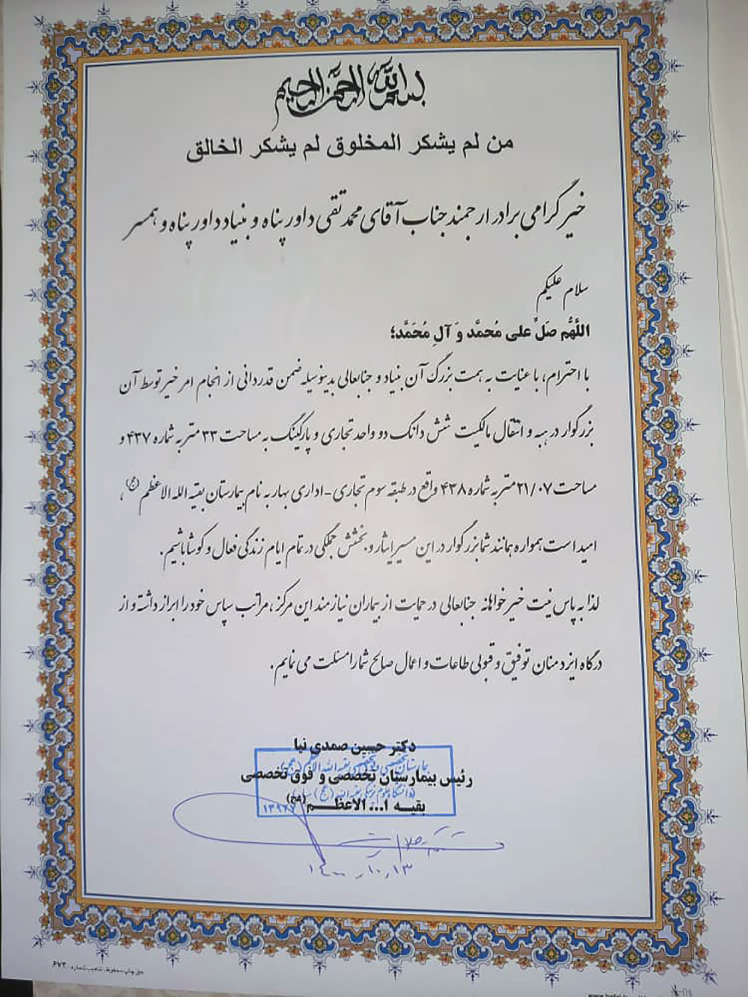 بسم الله الرحمن الرحیم
من لم یشکر المخلوق لم یشکر الخالق
خیر گرامی برادر ارجمند جناب آقای محمد تقی داور پناه و بنیاد داور پناه و همسر
سلام علیکم
اللَّهُم صَلِّ علی مُحمَّد وَ آلِ مُحَمَّد؛
با احترام، با عنایت به همت بزرگ آن بنیاد و جنابعالی بدینوسیله ضمن قدردانی از انجام امر خیر توسط آن
بزرگوار در هبه و انتقال مالکیت شش دانگ دو واحد تجاری و پارکینگ به مساحت ۳۳ متر به شماره ۴۳۷ و
مساحت ۲۱/۰۷ متر به شماره ۴۳۸ واقع در طبقه سوم تجاری - اداری بهار به نام بیمارستان بقیه الله الاعظم (عج) ،
امید است همواره همانند شما بزرگوار در این مسیر ایثار و بخشش جملگی در تمام ایام زندگی فعال و کوشا باشیم .
لذا به پاس نیت خیرخواهانه جنابعالی در حمایت از بیماران نیازمند این مرکز ، مراتب سپاس خود را ابراز داشته و از
درگاه ایزد منان توفیق و قبولی طاعات و اعمال صالح شما را مسئلت می نمایم .
دکتر حسین صمدی نیا
رئیس بیمارستان تخصصی و فوق تخصصی
بقیه ا... الاعظم (عج)
۱۴۰۰,۱۰,۱۳
حق چاپ محفوظ، تذهیب شماره: ۶۷۲